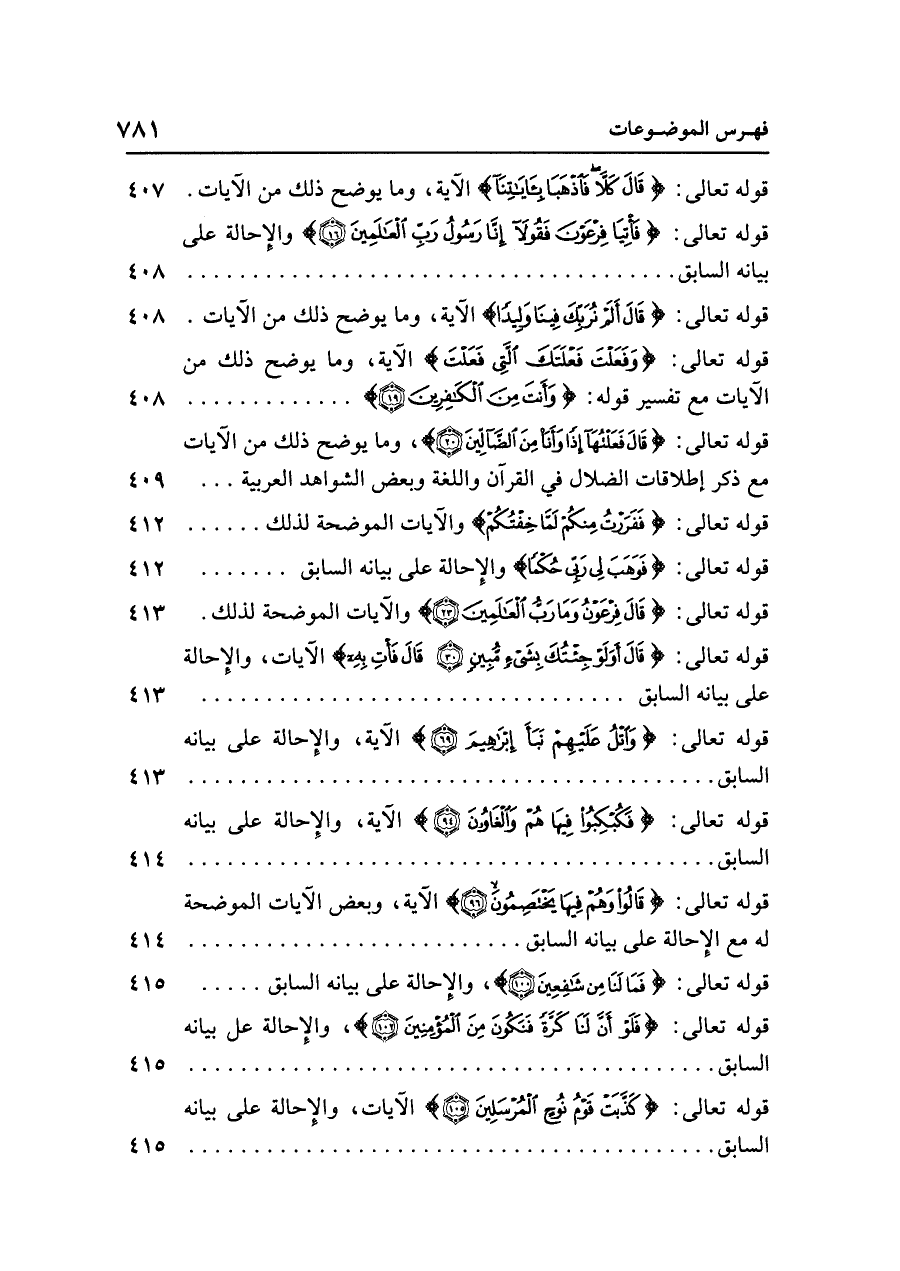 فهـرس الموضـوعات ٧٨١
قوله تعالى: ﴿ قَالَ كَلَّاۖ فَٱذْهَبَا بِـَٔايَٰتِنَآ﴾ الآية، وما يوضح ذلك من الآيات . ٤٠٧
قوله تعالى: ﴿ فَأْتِيَا فِرْعَوْنَ فَقُولَآ إِنَّا رَسُولُ رَبِّ ٱلْعَٰلَمِينَ ١٦﴾ والإحالة على
بيانه السابق . . . . . . . . . . . . . . . . . . . . . . . . . . . . . . . . . . . . . . ٤٠٨
قوله تعالى: ﴿ قَالَ أَلَمْ نُرَبِّكَ فِينَا وَلِيدًا﴾ الآية، وما يوضح ذلك من الآيات . ٤٠٨
قوله تعالى: ﴿وَفَعَلْتَ فَعْلَتَكَ ٱلَّتِى فَعَلْتَ ﴾ الآية، وما يوضح ذلك من
الآيات مع تفسير قوله: ﴿ وَأَنتَ مِنَ ٱلْكَٰفِرِينَ ١٩﴾ . . . . . . . . . . . . . ٤٠٨
قوله تعالى: ﴿ قَالَ فَعَلْتُهَآ إِذًا وَأَنَا۠ مِنَ ٱلضَّآلِّينَ ٢٠﴾، وما يوضح ذلك من الآيات
مع ذكر إطلاقات الضلال في القرآن واللغة وبعض الشواهد العربية . . . ٤٠٩
قوله تعالى: ﴿ فَفَرَرْتُ مِنكُمْ لَمَّا خِفْتُكُمْ﴾ والآيات الموضحة لذلك . . . . . . ٤١٢
قوله تعالى: ﴿ فَوَهَبَ لِى رَبِّى حُكْمًا﴾ والإحالة على بيانه السابق . . . . . . . ٤١٢
قوله تعالى: ﴿ قَالَ فِرْعَوْنُ وَمَا رَبُّ ٱلْعَٰلَمِينَ ٢٣﴾ والآيات الموضحة لذلك . ٤١٣
قوله تعالى: ﴿ قَالَ أَوَلَوْ جِئْتُكَ بِشَىْءٍ مُّبِينٍ ٣٠ قَالَ فَأْتِ بِهِۦٓ﴾ الآيات، والإحالة
على بيانه السابق . . . . . . . . . . . . . . . . . . . . . . . . . . . . . . . . . ٤١٣
قوله تعالى: ﴿ وَٱتْلُ عَلَيْهِمْ نَبَأَ إِبْرَٰهِيمَ ٦٩﴾ الآية، والإحالة على بيانه
السابق . . . . . . . . . . . . . . . . . . . . . . . . . . . . . . . . . . . . . . . . . ٤١٣
قوله تعالى: ﴿ فَكُبْكِبُوا۟ فِيهَا هُمْ وَٱلْغَاوُۥنَ ٩٤﴾ الآية، والإحالة على بيانه
السابق . . . . . . . . . . . . . . . . . . . . . . . . . . . . . . . . . . . . . . . . . ٤١٤
قوله تعالى: ﴿ قَالُوا۟ وَهُمْ فِيهَا يَخْتَصِمُونَۙ ٩٦﴾ الآية، وبعض الآيات الموضحة
له مع الإحالة على بيانه السابق . . . . . . . . . . . . . . . . . . . . . . . . . . ٤١٤
قوله تعالى: ﴿ فَمَا لَنَا مِن شَٰفِعِينَ ١٠٠﴾، والإحالة على بيانه السابق . . . . . ٤١٥
قوله تعالى: ﴿فَلَوْ أَنَّ لَنَا كَرَّةً فَنَكُونَ مِنَ ٱلْمُؤْمِنِينَ ١٠٢﴾، والإحالة عل بيانه
السابق . . . . . . . . . . . . . . . . . . . . . . . . . . . . . . . . . . . . . . . . . ٤١٥
قوله تعالى: ﴿ كَذَّبَتْ قَوْمُ نُوحٍ ٱلْمُرْسَلِينَ ١٠٥﴾ الآيات، والإحالة على بيانه
السابق . . . . . . . . . . . . . . . . . . . . . . . . . . . . . . . . . . . . . . . . . ٤١٥